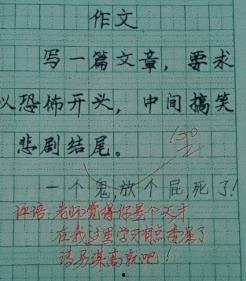 作文
写一篇文章，要求
以恐怖开头，中间搞笑
悲剧结尾。
一个鬼，放个屁死了！
评语：老师觉得你是个天才
在我这里学习有点委屈了
请另谋高就吧！